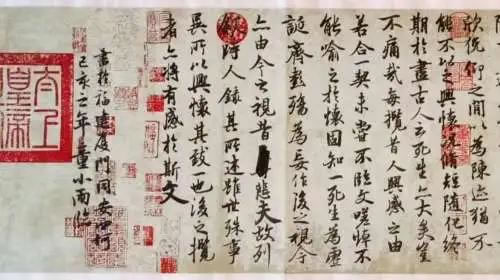 欣俛仰之間以為陳迹猶不
能不以之興懷况脩短隨化終
期於盡古人云死生亦大矣豈
不痛哉每攬昔人興感之由
若合一契未嘗不臨文嗟悼不
能喻之於懷固知一死生為虛
誕齊彭殤為妄作後之視今
亦由今之視昔悲夫故列
敘時人錄其所述雖世殊事
異所以興懷其致一也後之攬
者亦將有感於斯文
書於福建厦門同安柯
己亥年董小雨臨
太上
皇帝